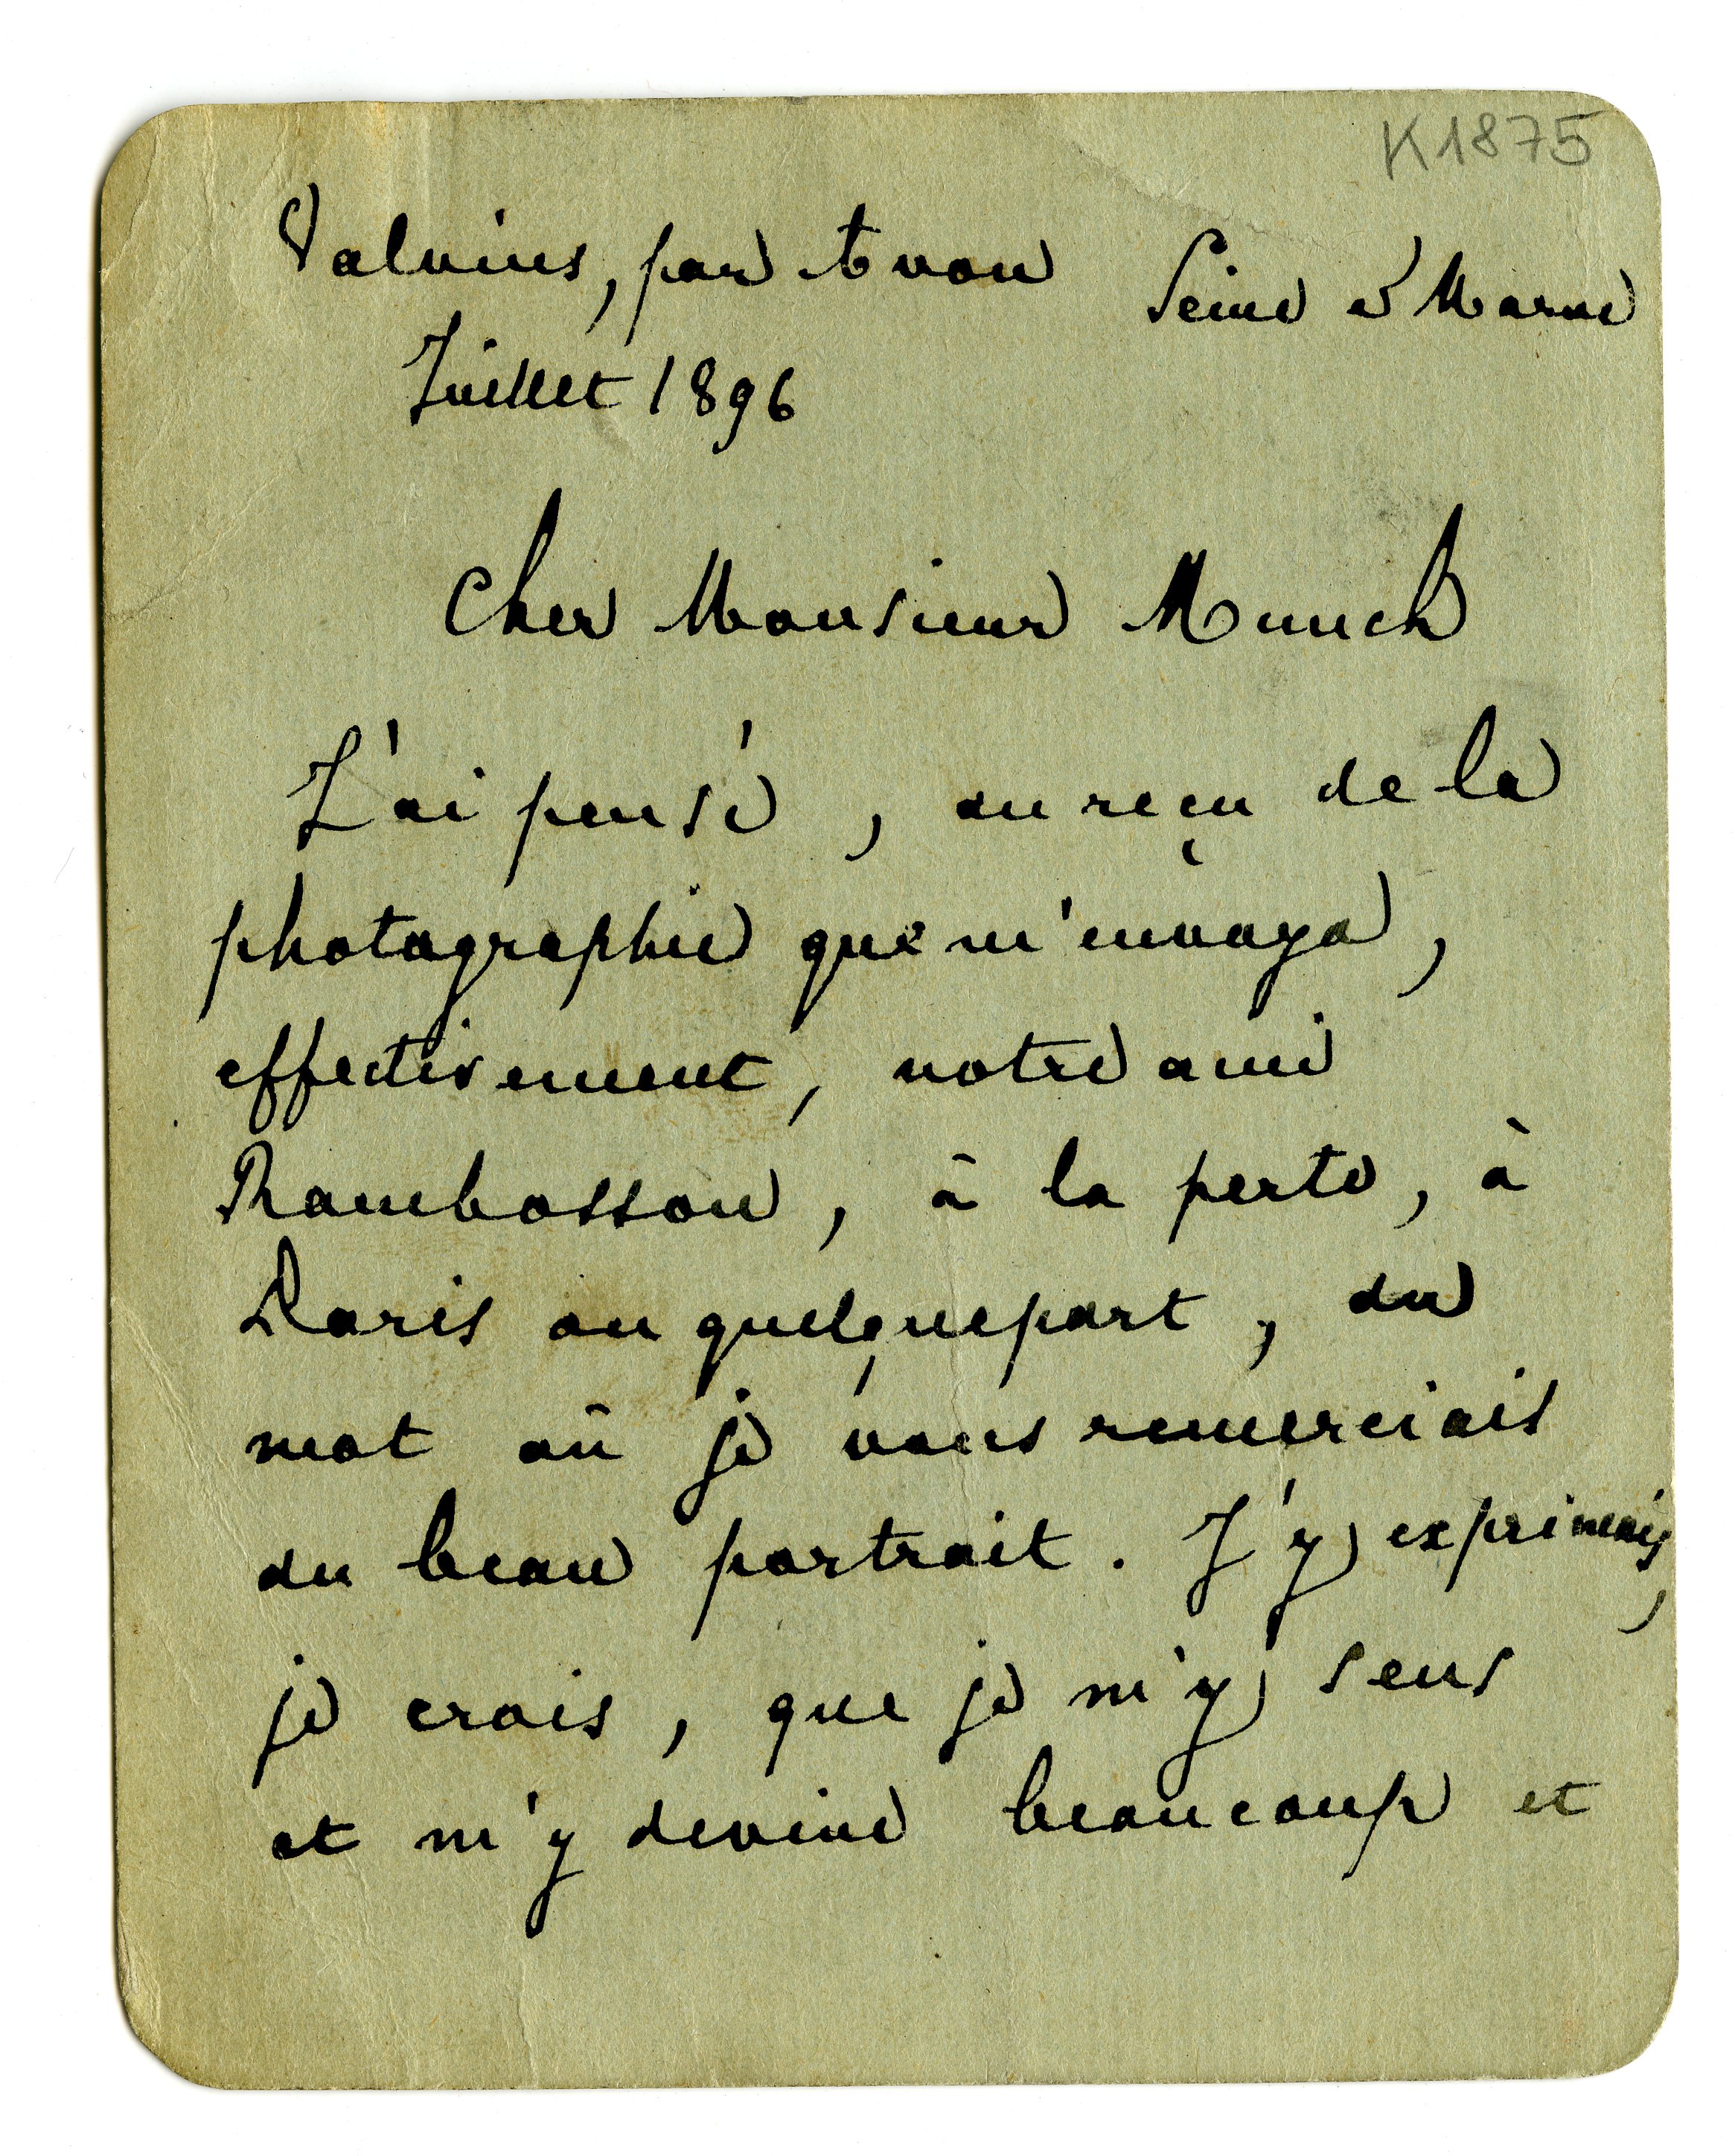 K1875
Valvins, par Avon Seine et Marne
Juillet 1896
Cher Monsieur Munch
J'ai pensé, au reçu de la
photographie que m'envoya,
effectivement, notre ami
Rambosson, à la perte, à
Paris ou quelquepart, du
mot où je vous remerciais
du beau portrait. J'y exprimais,
je crois, que je m'y sens
et m'y devine beaucoup et